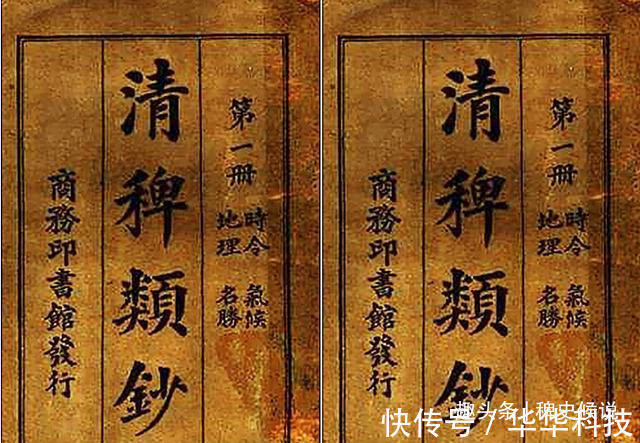 第一册
時令 氣候
地理 名勝
清稗類鈔
商務印書館發行
第一册
時令 氣候
地理 名勝
清稗類鈔
商務印書館發行
趣头条 | 稗史候说
快传号 / 华华科技